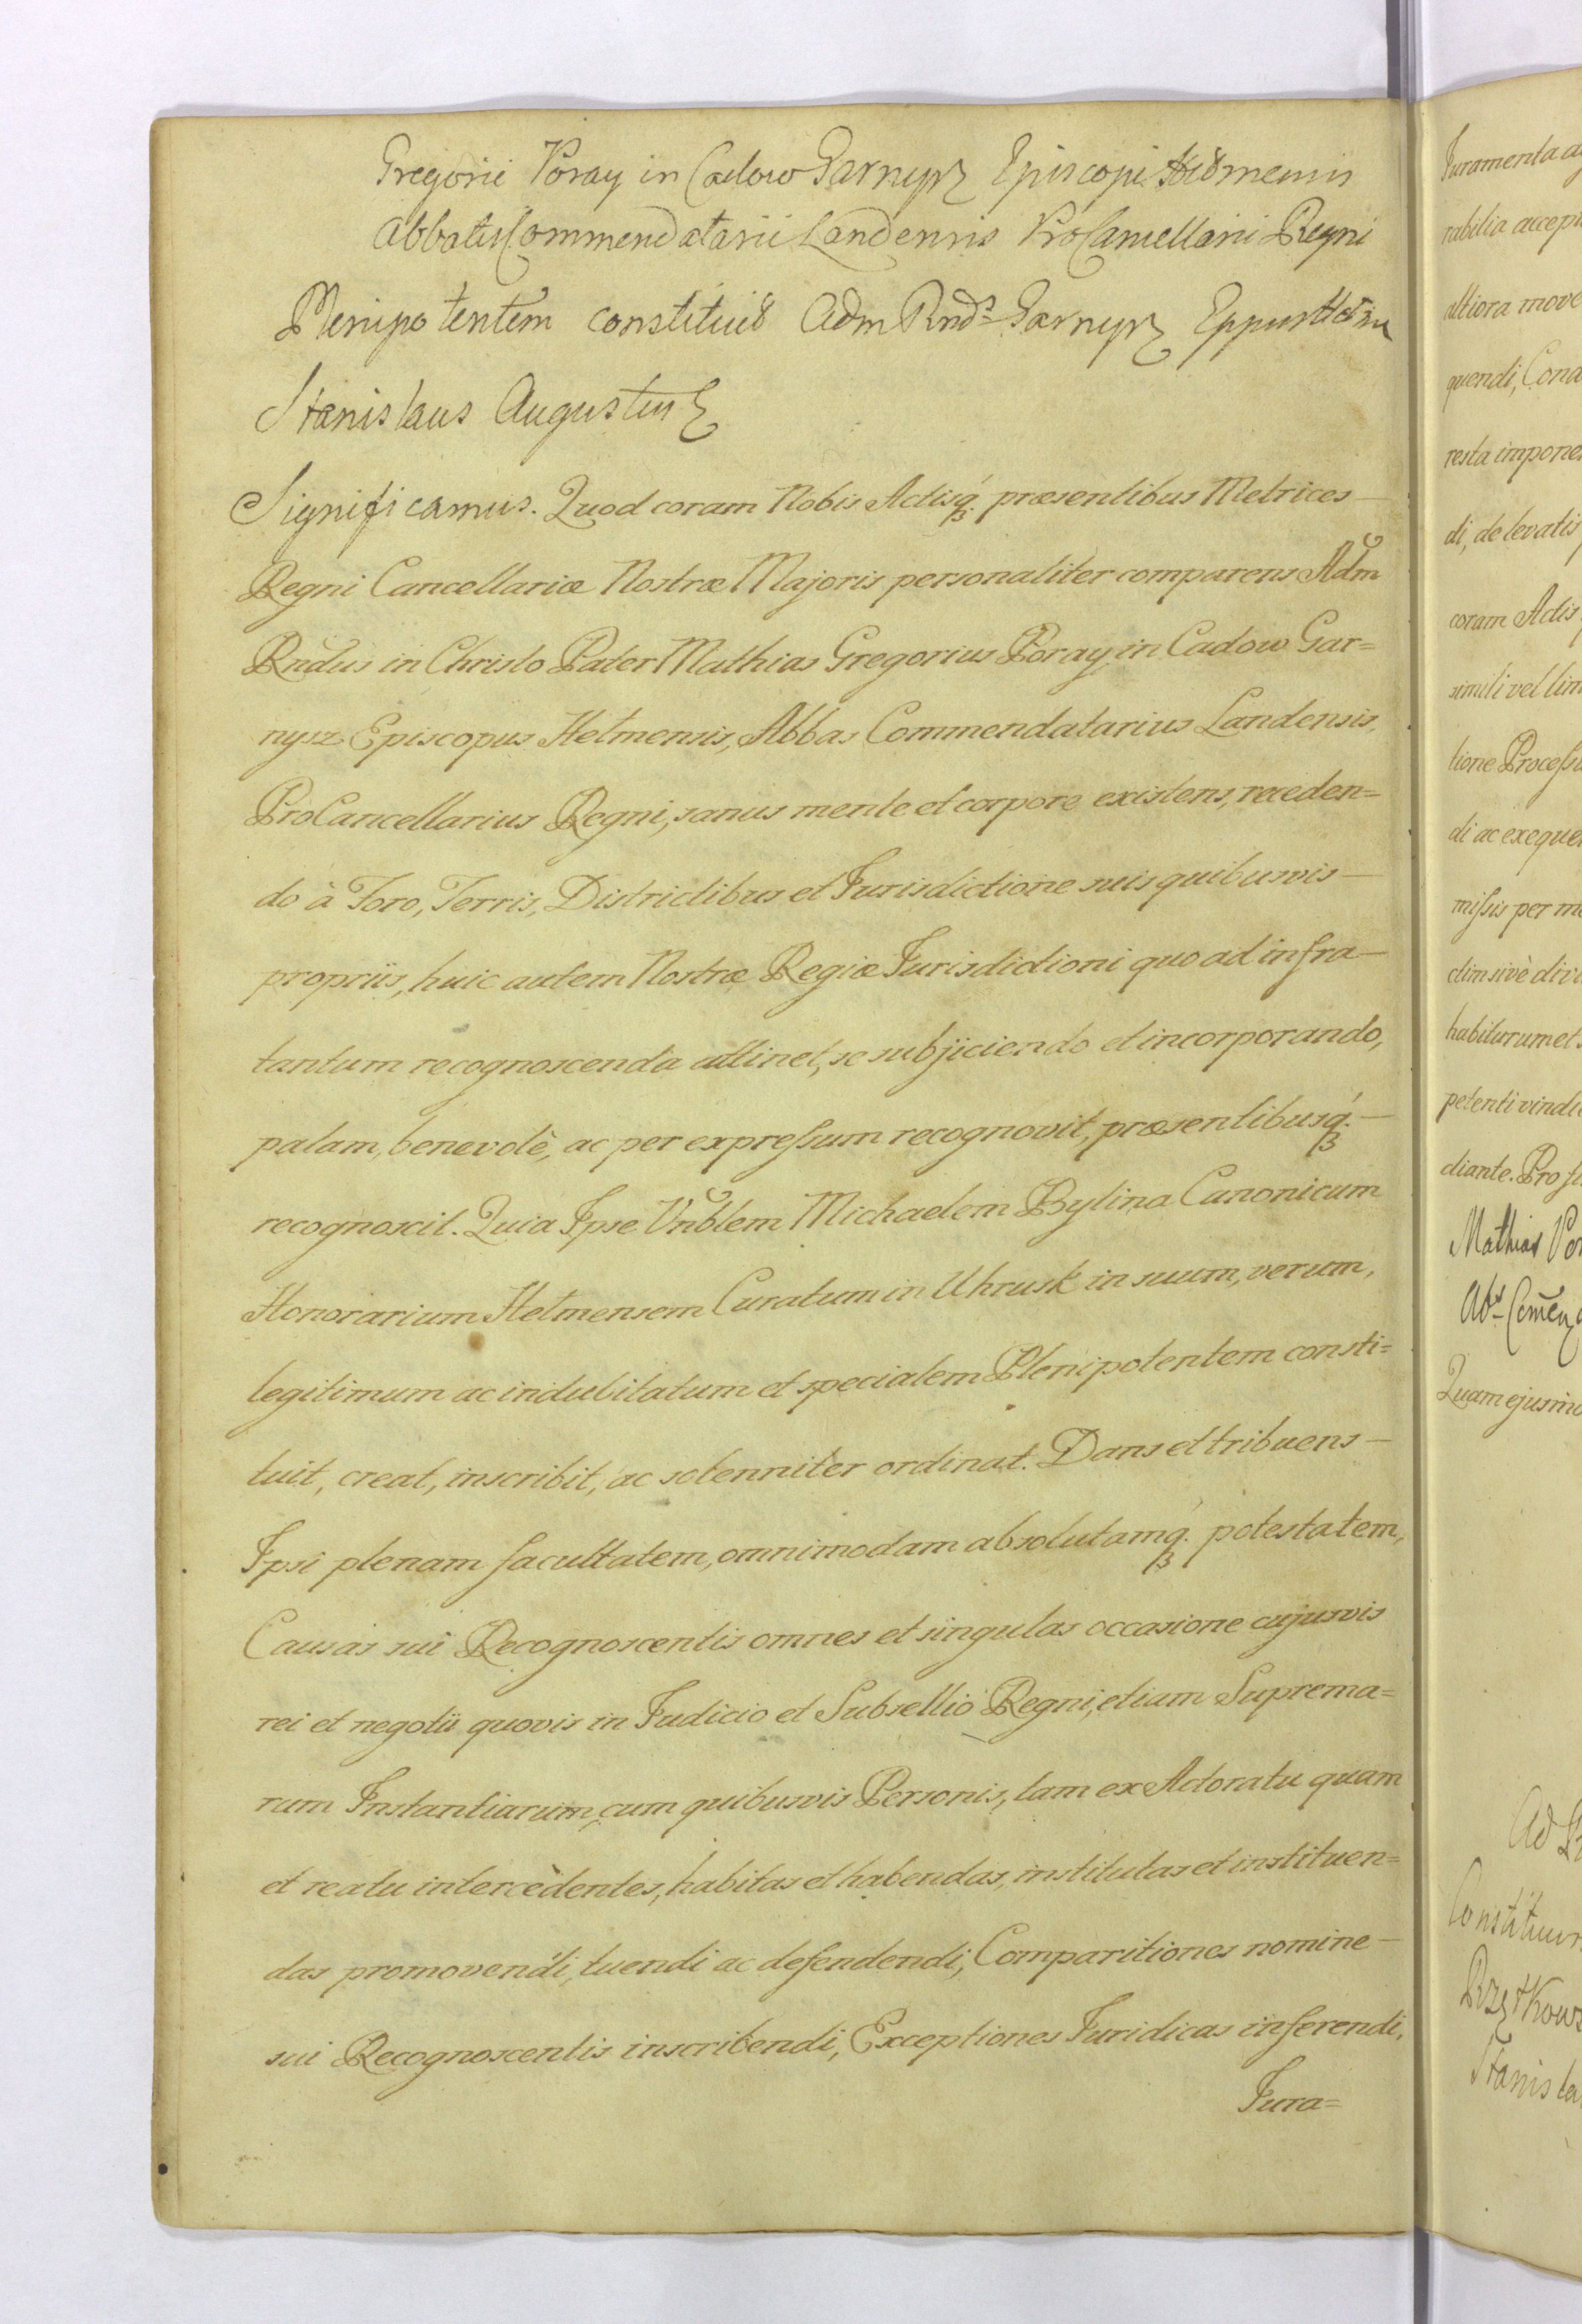 Gregorii Poray in Cadow Garnysz Episcopi Helmensis
Abbatis Commendatarii Landensis ProCancellarii Regni
Plenipotentem constituit Adm Rnds Garnysz Eppus Helm
Stanislaus Augustus
Significamus. Quod coram Nobis Actisq́ꝫ. præsentibus Metrices —
Regni Cancellariæ Nostræ Majoris personaliter comparens Adm
Rndus in Christo Pater Mathias Gregorius Poray in Cadow Gar=
nysz Episcopus Helmensis, Abbas Commendatarius Landensis,
ProCancellarius Regni, sanus mente et corpore existens, receden=
do à Foro, Terris, Districtibus et Jurisdictione suis quibusvis —
propriis, huic autem Nostræ Regiæ Jurisdictioni quo ad infra —
tantum recognoscenda attinet, se subjiciendo et incorporando,
palam, benevolè, ac per expreſsum recognovit, præsentibusq́ꝫ. —
recognoscit. Quia Ipse Vnblem Michaelem Bylina Canonicum
Honorarium Helmensem Curatum in Uhrusk in suum, verum,
legitimum ac indubitatum et specialem Plenipotentem consti=
tuit, creat, inscribit, ac solenniter ordinat. Dans et tribuens —
Ipsi plenam facultatem, omnimodam absolutamq́ꝫ. potestatem,
Causas sui Recognoscentis omnes et singulas occasione cujusvis
rei et negotii quovis in Judicio et Subsellio Regni, etiam Suprema=
rum Instantiarum, cum quibusvis Personis, tam ex Actoratu quam
et reatu intercèdentes, habitas et habendas, institutas et instituen=
das promovendi, tuendi ac defendendi, Comparitiones nomine —
sui Recognoscentis inscribendi, Exceptiones Juridicas inferendi,
Jura=
Juramenta
rabilia
altiora
quendi,
di, de levatis
coram Actis
simili vel
tione
di ac
miſsis per
petenti
diante. Pro
Mathias
Stanis